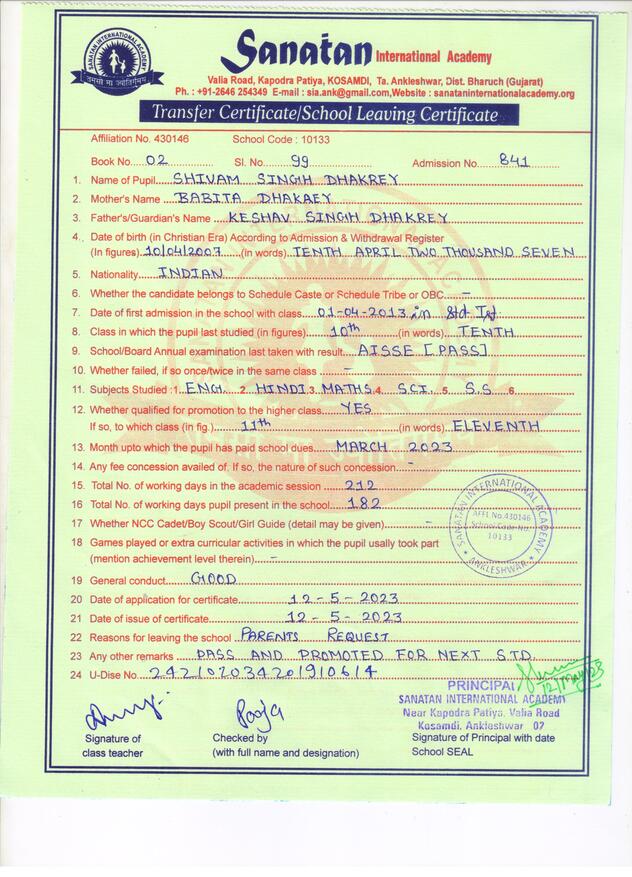 SANATAN INTERNATIONAL ACADEMY
तमसो मा ज्योतिर्गमय
Sanatan International Academy
Valia Road, Kapodra Patiya, KOSAMDI, Ta. Ankleshwar, Dist. Bharuch (Gujarat)
Ph. : +91-2646 254349 E-mail : sia.ank@gmail.com,Website : sanataninternationalacademy.org
Transfer Certificate/School Leaving Certificate
Affiliation No. 430146 School Code : 10133
Book No. 02 Sl. No. 99 Admission No. 841
1. Name of Pupil SHIVAM SINGH DHAKREY
2. Mother's Name BABITA DHAKAEY
3. Father's/Guardian's Name KESHAV SINGH DHAKREY
4. Date of birth (in Christian Era) According to Admission & Withdrawal Register
(In figures) 10/04/2007 (in words) TENTH APRIL TWO THOUSAND SEVEN
5. Nationality INDIAN
6. Whether the candidate belongs to Schedule Caste or Schedule Tribe or OBC. –
7. Date of first admission in the school with class 01-04-2013 in Std Ist
8. Class in which the pupil last studied (in figures) 10th (in words) TENTH
9. School/Board Annual examination last taken with result AISSE [PASS]
10. Whether failed, if so once/twice in the same class –
11. Subjects Studied : 1. ENG. 2. HINDI 3. MATHS 4. SCI. 5. S.S 6.
12. Whether qualified for promotion to the higher class YES
If so, to which class (in fig.) 11th (in words) ELEVENTH
13. Month upto which the pupil has paid school dues. MARCH 2023
14. Any fee concession availed of. If so, the nature of such concession –
15. Total No. of working days in the academic session 212
16 Total No. of working days pupil present in the school 182
17 Whether NCC Cadet/Boy Scout/Girl Guide (detail may be given) –
18 Games played or extra curricular activities in which the pupil usally took part
(mention achievement level therein) –
SANATAN INTERNATIONAL ACADEMY
AFFL No.430146
School Code No.
10133
ANKLESHWAR
19 General conduct GOOD
20 Date of application for certificate 12-5-2023
21 Date of issue of certificate 12-5-2023
22 Reasons for leaving the school PARENTS REQUEST
23 Any other remarks PASS AND PROMOTED FOR NEXT STD.
24 U-Dise No. 24210203420190614
12/May/23
PRINCIPAL
SANATAN INTERNATIONAL ACADEMY
Near Kapodra Patiya, Valia Road
Kosamdi, Ankleshwar 02
Pooja
Signature of class teacher
Checked by (with full name and designation)
Signature of Principal with date School SEAL